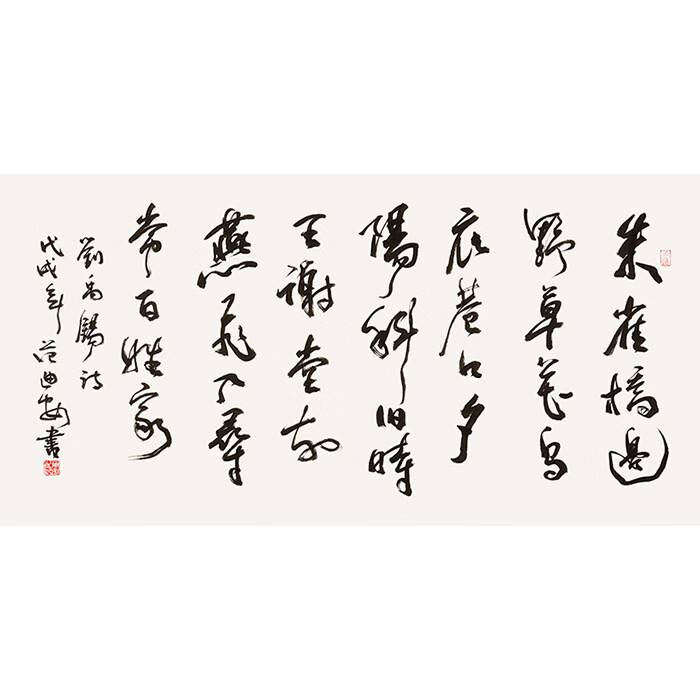 朱雀橋邊
野草花烏
衣巷口夕
陽斜旧時
王謝堂前
燕飛入尋
常百姓家
劉禹錫詩
戊戌年范迪安書